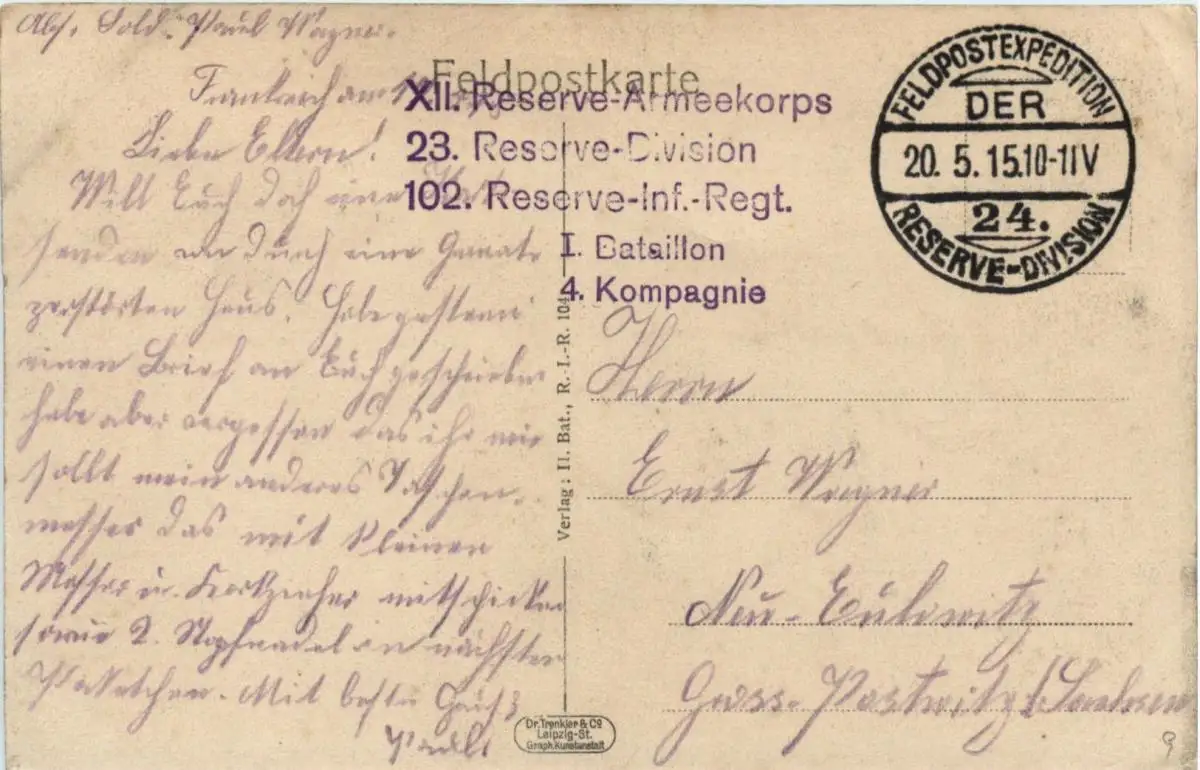 Abs. Sold. Paul Wagner.
Feldpostkarte
Frankreich am
Liebe Eltern!
Will Euch doch eine
senden wo durch eine Granate
zerstörten Haus. Habe gestern
einen Brief an Euch geschrieben
habe aber vergessen das ihr mir
sollt mein anderes Taschen-
messer das mit kleinen
Messer u. Korkzieher mitschicken
sowie 2. Stopfnadel in nächsten
Paketchen. Mit besten Gruß
Paul
XII. Reserve-Armeekorps
23. Reserve-Division
102. Reserve-Inf.-Regt.
I. Bataillon
4. Kompagnie
FELDPOSTEXPEDITION
DER
20. 5. 15.10-11V
24.
RESERVE-DIVISION
Verlag: II. Bat., R.-I.-R. 104
Herrn
Ernst Wagner
Neu-Eulowitz
Gross-Postwitz i/Sachsen
Dr. Trenkler & Co
Leipzig-St.
Graph. Kunstanstalt
9